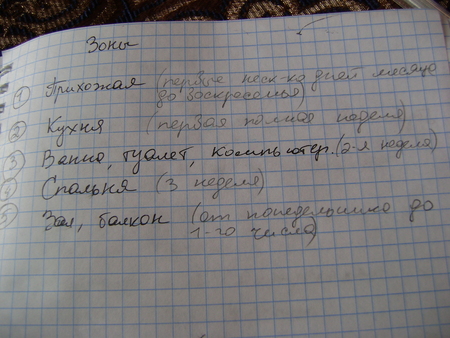 Зоны
① Прихожая (первые неск-ко дней месяца
до Воскресенья)
② Кухня (первая полная неделя)
3 Ванна, туалет, компьютер. (2-я неделя)
4 Спальня (3 неделя)
5 Зал, балкон (от понедельника до
1-го числа)